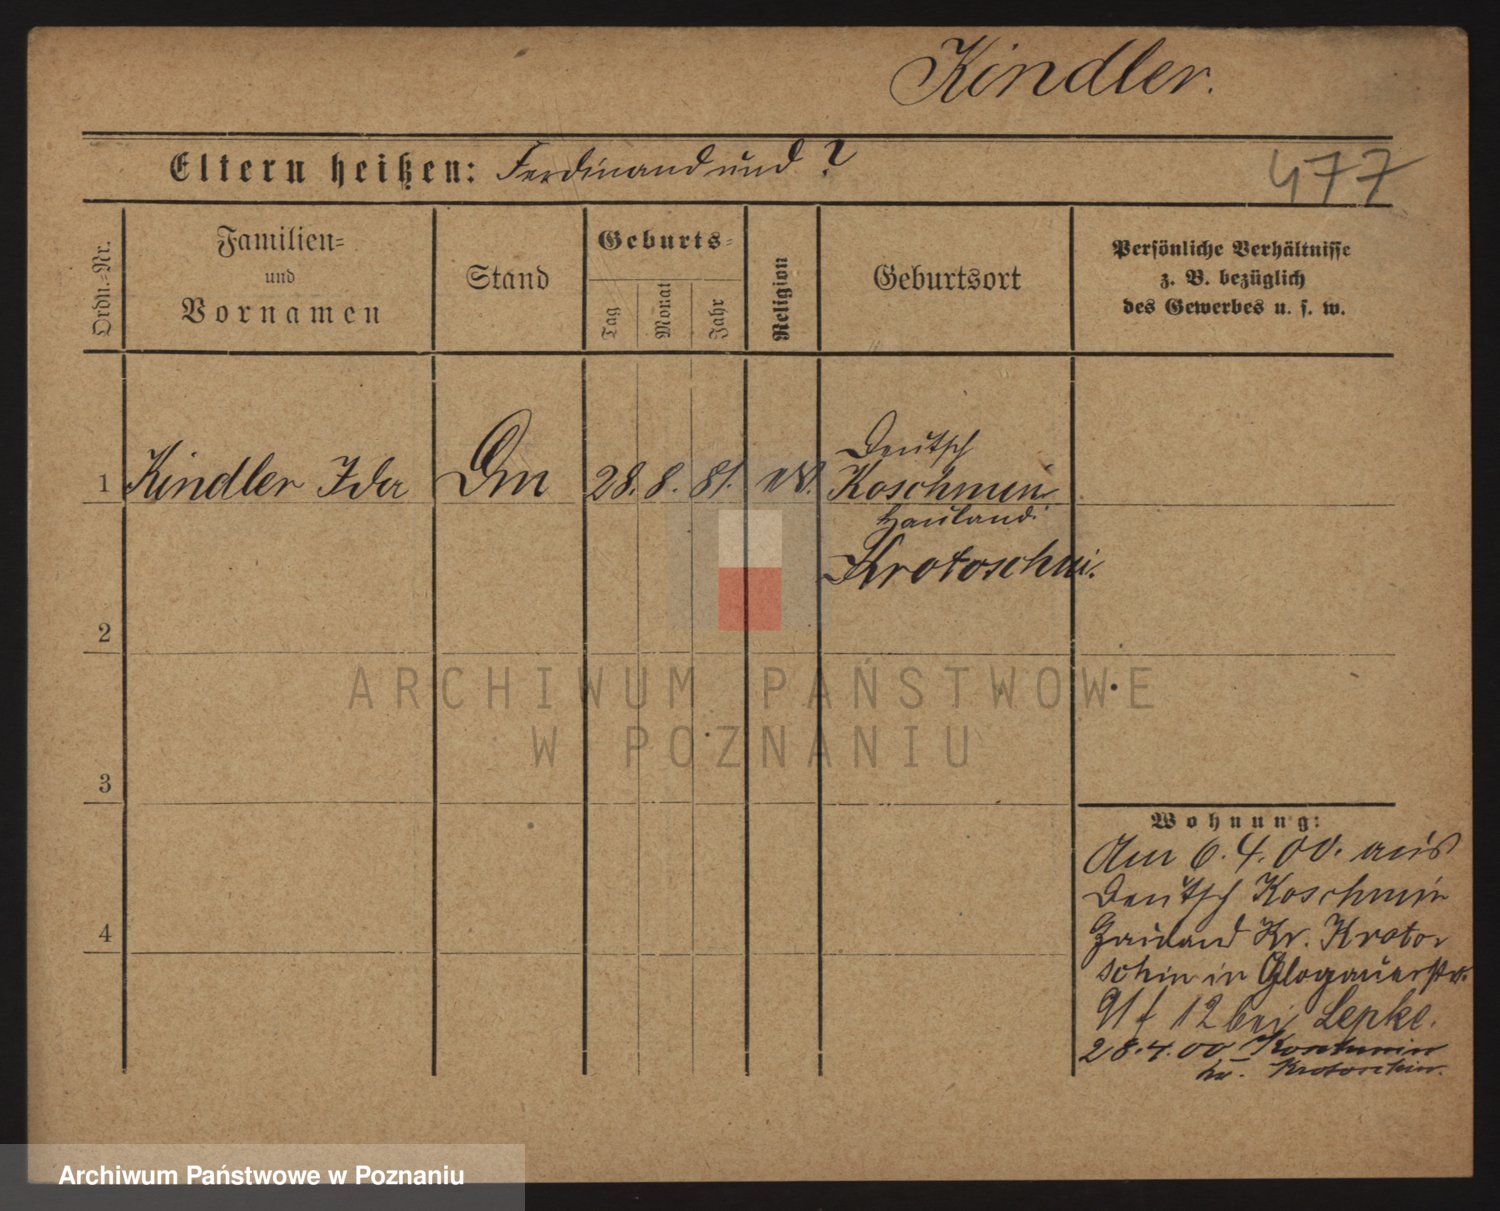 Kindler.
Eltern heißen: Ferdinand und ?
477
Ordn.-Nr.
Familien-
und
Vornamen
Stand
Geburts-
Tag
Monat
Jahr
Religion
Geburtsort
Persönliche Verhältnisse
z. B. bezüglich
des Gewerbes u. s. w.
Deutsch
1 Kindler Ida 28. 8. 81. Koschmin
Hauland
Krotoschin.
2
ARCHIWUM PAŃSTWOWE
W POZNANIU
3
Wohnung:
Am 6.4.00. aus
Deutsch Koschmin
Hauland Kr. Kroto-
schin in Glogauerstr.
91 f 12 bei Lepke.
28.4.00 Koschmin
Kr. Krotoschin.
4
Archiwum Państwowe w Poznaniu